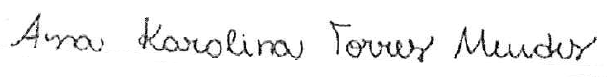 Ana Karolina Torres Mendes